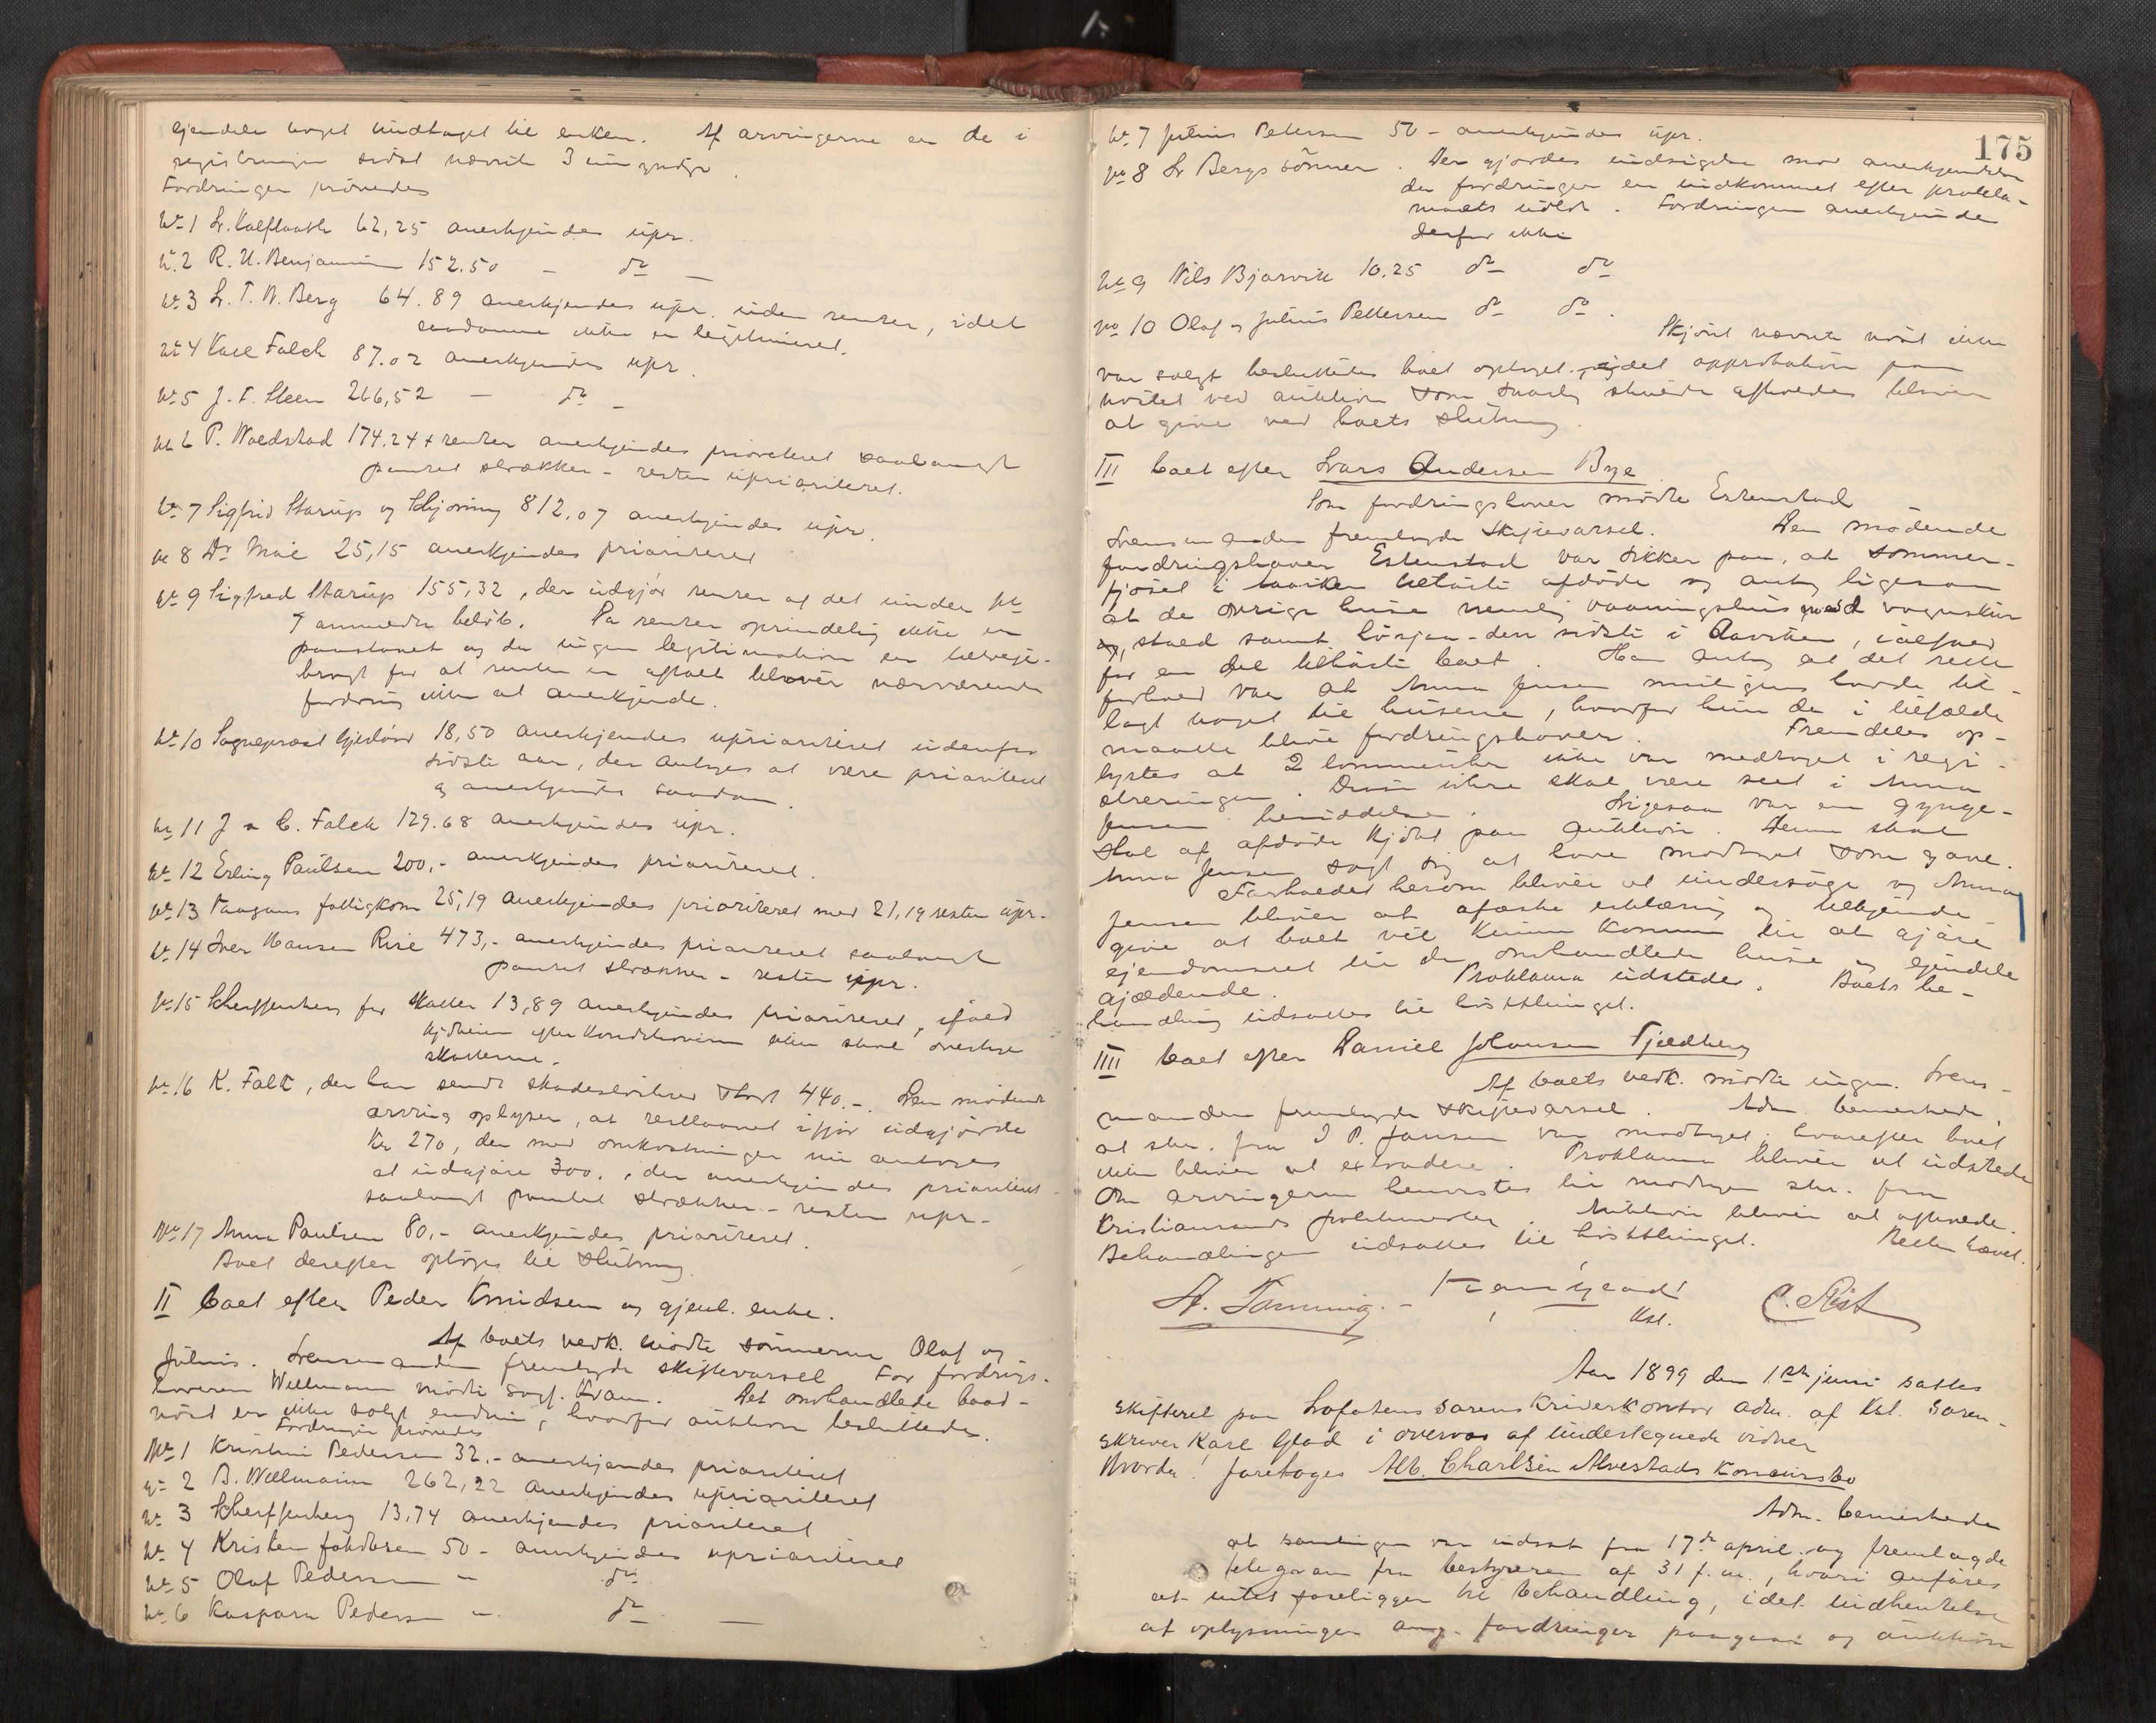 ejendele noget undtaget til enken. Af arvingerne er de i
registreringen sidst nævnte 3 umyndige.
Fordringer prövedes
No 1 L. Kalfloath 62,25 anerkjendes upr.
No 2 R. U. Benjaminsen 152.50 - do -
No 3 L. T. N. Berg 64.89 anerkjendes upr. uden renter, idet
saadanne ikke er legitimeret.
No 4 Kael Falch 87.02 anerkjendes upr.
No 5 J. F. Steen 266,52 - do -
No 6 P. Woldstad 174.24 + renter anerkjendes prioriteret saalangt
pantet strækker - resten uprioriteret.
No 7 Sigfrid Starup og Schjoning 812,07 anerkjendes upr.
No 8 Dr Moe 25,15 anerkjendes prioriteret
No 9 Sigfred Starup 155,32, der udgjör renter af det under No
7 anmeldte belöb. Da renter oprindelig ikke er
paastaaet og da ingen legitimation er tilveje-
bragt for at renter er aftalt bliver nærværende
fordring ikke at anerkjende.
No 10 Sogneprest 18,50 anerkjendes uprioriteret udenfor
sidste aar, der antages at være prioriteret
og anerkjendes saadan.
No 11 J & C. Falck 129.68 anerkjendes upr.
No 12 Erling Paulsen 200,- anerkjendes prioriteret.
No 13 Vaagans fattigkom 25,19 anerkjendes prioriteret med 21,19 resten upr.
No 14 Iver Hansen Rise 473,- anerkjendes prioriteret saalangt
pantet strækker - resten upr.
No 15 Scherffenberg for skatter 13,89 anerkjendes prioriteret, ifald
ikke skal overtage
skatterne.
No 16 K. Falk, der har sendt skadeslösbrev stort 440.-. Den mödende
arving oplyser, at restlaanet ifjor udgjorde
Kr 270, der med omkostninger nu antages
at udgjöre 300,, der anerkjendes prioriteret
saalangt pantet strækker - resten upr.
No 17 Anna Paulsen 80,- anerkjendes prioriteret.
Boet derefter optoges til slutning
II boet efter Peder Knudsen og gjenl. enke.
Af boets vedk. mödte sönnerne Olaf og
Julius. Lensmanden fremlagde skiftevarsel For fordrings-
haveren Wellmann mödte sagf. Kram. Det omhandlede baad-
nöst er ikke solgt endnu, hvorfor auktion besluttedes.
Fordringer prövedes
No 1 Kristine Pedersen 32.- anerkjendes prioriteret
No 2 B. Wellmann 262,22 anerkjendes uprioriteret
No 3 Scherffenberg 13,74 anerkjendes prioriteret
No 4 Kristen Jakobsen 50 - anerkjendes uprioriteret
No 5 Olaf Pedersen - do
No 6 Kaspara Pedersen - do -
175
No 7 Julius Pettersen 50 - anerkjendes upr.
No 8 L Bergs sönner. Der gjordes indsigelse mod anerkjendelsen
da fordringen er indkommet efter prokla-
maets udlöb. Fordringen anerkjendes
derfor ikke
No 9 Nils Bjarvik 10.25 do do
No 10 Olaf og Julius Pettersen do do.
Skjönt nævnte nöst ikke
var solgt besluttedes boet optaget, idet approbation paa
nöstet ved auktion som snarlig skulde afholdes bliver
at give ved boets slutning.
III boet efter Lars Andersen Bye
Som fordringshaver mödte Estenstad
Lensmanden fremlagde skiftevarsel. Den mödende
fordringshaver Estenstad var sikker paa, at sommer-
fjöset i marken tilhörte afdöde og antog ligesom
at de övrige huse nemlig vaaningshus med vognskur
og, stald samt lörjan - den sidste i Aavrken, ialfald
for en del tilhörte boet. Han antog at det rette
forhold var at Anna Jensen muligens havde til-
lagt noget til husene, hvorfor hun da i tilfælde
maatte blive fordringshaver. Fremdeles op-
lystes at 2 lommeuhr ikke var medtaget i regi-
streringen. Disse uhre skal være seet i Anna
Jensens besiddelse. Ligesaa var en gynge-
stol af afdöde kjöbt paa auktion. Denne skal
Anna Jensen sagt sig at have modtaget som gave.
Forholdet herom bliver at undersöge og Anna
Jensen bliver at afæske erklæring og tilkjende-
give at boet vil kunne komme til at gjöre
ejendomsret til de omhandlede huse og ejendele
gjældende. Proklama udstedes. Boets be-
handling udsattes til hösttinget.
IIII boet efter Daniel Johansen Fjeldberg
Af boets vedk. mödte ingen. Lens-
manden fremlagde skiftevarsel. Adm. bemerkede,
at skr. fra I P. Jansen var modtaget, hvorefter boet
ikke bliver at extradere. Proklama bliver at udstede
Om arvingerne henvistes til modtagne skr. fra
Kristiansands politimester. Auktion bliver at afholde.
Behandlingen udsattes til hösttinget. Retten hævet.
A. Tömming. Karl Glad C. Rist
Kst.
Aar 1899 den 1ste juni sattes
skifteret paa Lofotens sorenskriverkontor adm. af Kst. soren-
skriver Karl Glad i overvær af undertegnede vidner
Hvorda! foretoges Alb. Charlsen Alvestads konkursbo
Adm. bemerkede
at samlingen var udsat fra 17de april og fremlagde
telegram fra bestyreren af 31 f.m., hvori anföres
at intet foreligger til behandling, idet indhentelse
af oplysninger ang. fordringer paagaar og auktion